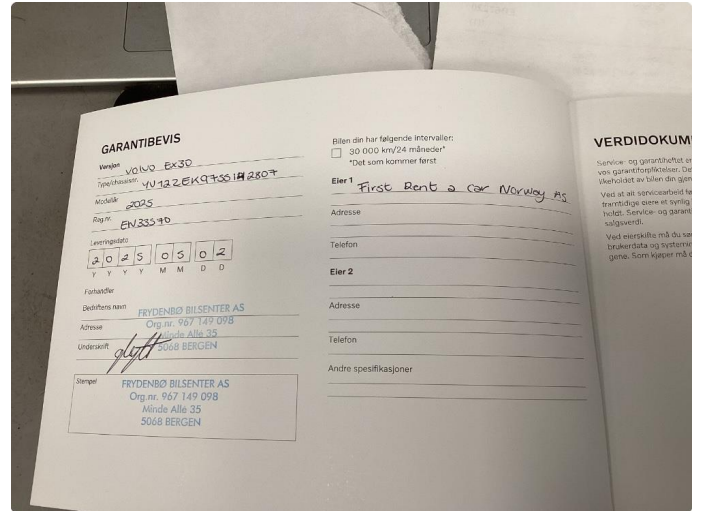 GARANTIBEVIS
Versjon VOLVO EX30
Type/chassisnr.
Modellår 2025
Reg.nr. EN33570
Leveringsdato
2025 05 02
Y Y Y Y M M D D
Forhandler
Bedriftens navn FRYDENBØ BILSENTER AS
Adresse Org.nr. 967 149 098
Minde Allé 35
Underskrift 5068 BERGEN
Stempel FRYDENBØ BILSENTER AS
Org.nr. 967 149 098
Minde Allé 35
5068 BERGEN
Bilen din har følgende intervaller:
30 000 km/24 måneder*
*Det som kommer først
Eier 1 First Rent a car Norway AS
Adresse
Telefon
Eier 2
Adresse
Telefon
Andre spesifikasjoner
VERDIDOKUM
Service- og garantiheftet er
vos garantiforpliktelser. De
likeholdet av bilen din gjen
Ved at alt servicearbeid fø
framtidige eiere et synlig
holdt. Service- og garant
salgsverdi.
Ved eierskifte må du sø
brukerdata og systemin
gene. Som kjøper må d